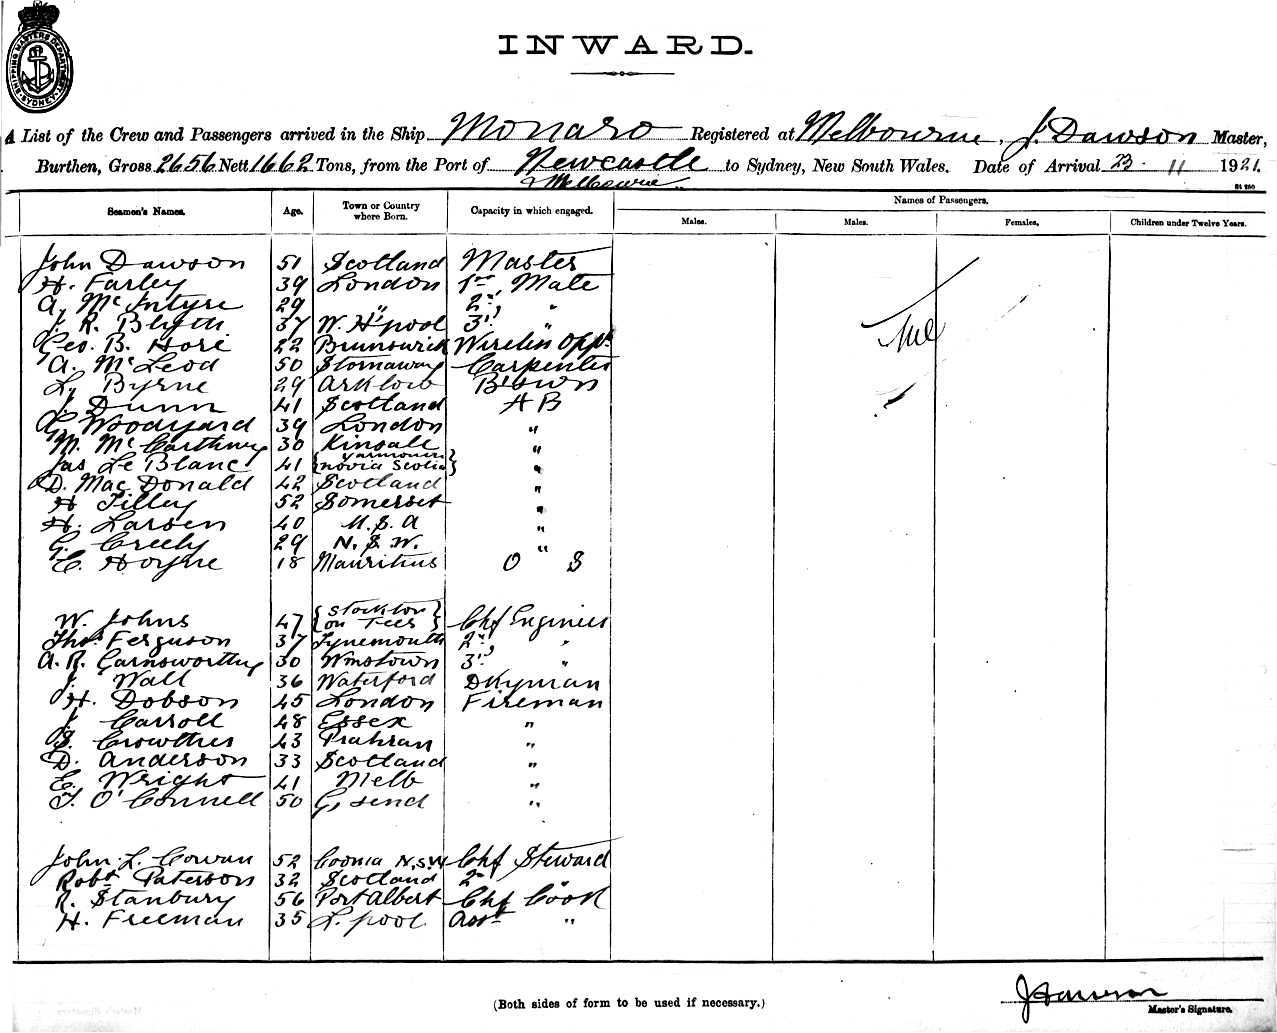 SHIPPING MASTERS DEPARTMENT SYDNEY
INWARD.
A List of the Crew and Passengers arrived in the Ship Monaro Registered at Melbourne, J. Dawson Master,
Burthen, Gross 2656 Nett 1662 Tons, from the Port of Newcastle to Sydney, New South Wales. Date of Arrival 23 11 1921.
& Melbourne.
Seamen's Names. Age. Town or Country where Born. Capacity in which engaged. Names of Passengers.
Males. Males. Females. Children under Twelve Years.
John Dawson 51 Scotland Master
H. Farley 39 London 1st Mate
A. McIntyre 29 " 2nd "
J. R. Blyth 37 W. H'pool 3rd "
Geo. B. Hore 22 Brunswick Wireless Opp.
A. McLeod 50 Stornaway Carpenter
L. Byrne 29 Arklow Boswn
J. Dunn 41 Scotland A B
Woodyard 39 London "
M. McCarthney 30 Kinsale "
Jas Le Blanc 41 {Yarmouth Novia Scotia} "
D. MacDonald 42 Scotland "
H Tilley 52 Somerset "
H. Larsen 40 U.S.A "
G. Creely 29 N.S.W. "
C. Hoyne 18 Mauritius O S
W. Johns 47 {Stockton on Tees} Chf Engineer
Thos Ferguson 37 Tynemouth 2nd "
A. R. Garnsworthy 30 Wmstown 3rd "
J. Wall 36 Waterford Dkyman
H. Dobson 45 London Fireman
J. Carroll 48 Essex "
S. Crowther 43 Prahran "
D. Anderson 33 Scotland "
E. Wright 41 Melb "
T. O'Connell 50 G, send "
John L. Cowan 52 Coonia N.S.W Chf Steward
Robt Paterson 32 Scotland 2nd "
R. Stanbury 56 Port Albert Chf Cook
H. Freeman 35 L. pool Asst "
Nil
(Both sides of form to be used if necessary.)
J Dawson
Master's Signature.